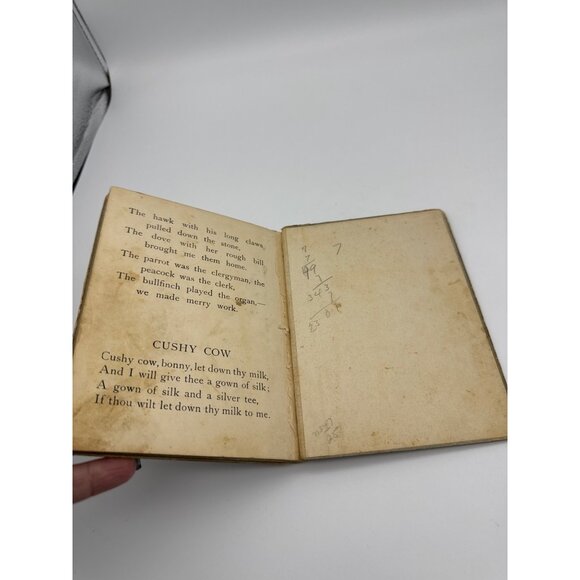 The hawk with his long claws
pulled down the stone,
The dove with her rough bill
brought me them home.
The parrot was the clergyman, the
peacock was the clerk,
The bullfinch played the organ,—
we made merry work.
CUSHY COW
Cushy cow, bonny, let down thy milk,
And I will give thee a gown of silk;
A gown of silk and a silver tee,
If thou wilt let down thy milk to me.
7
7
7
49
7
343
7